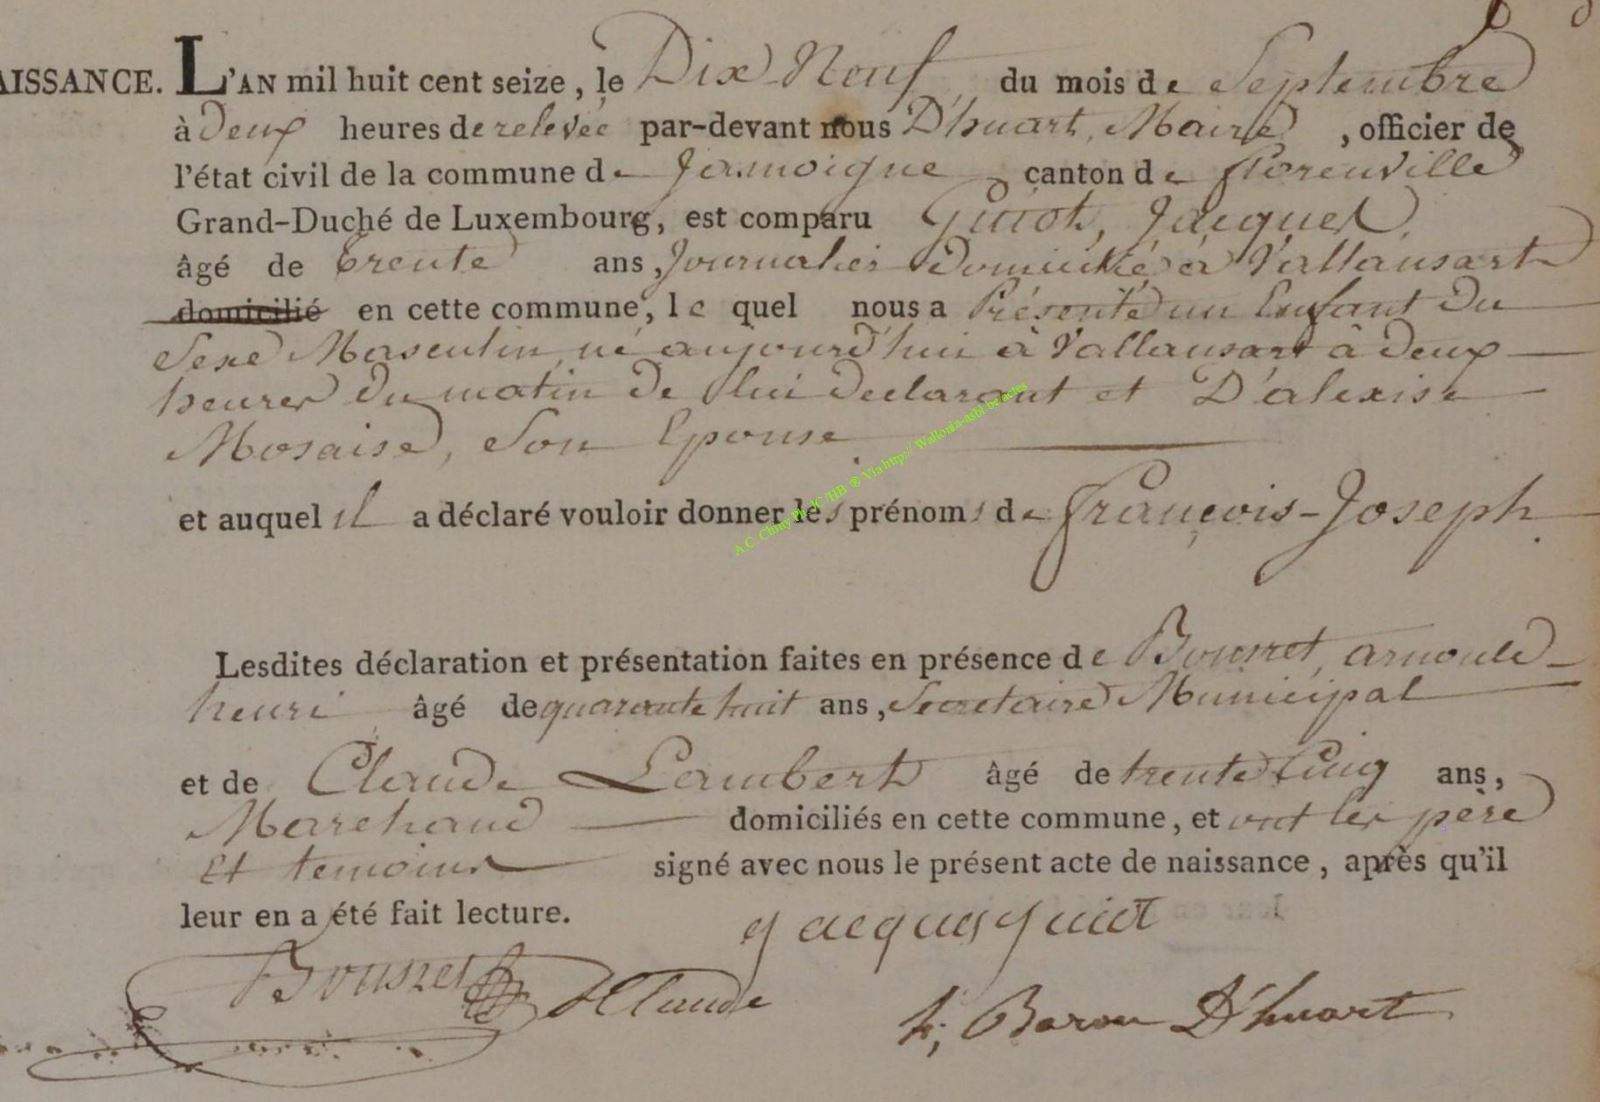 AISSANCE. L'AN mil huit cent seize, le Dix Neuf du mois de Septembre
à deux heures de relevée par-devant nous D'huart, Maire, officier de
l'état civil de la commune de Jamoigne canton de florenville
Grand-Duché de Luxembourg, est comparu Guiot, Jacques,
âgé de trente ans, Journalier domicilié à Vallansart
domicilié en cette commune, le quel nous a Présenté un Enfant du
Sexe Masculin né aujourd'hui à Vallansart à deux
heures du matin de lui declarant et D'alexise
Mosaise, Son Epouse
et auquel il a déclaré vouloir donner les prénoms de françois-Joseph.
Lesdites déclaration et présentation faites en présence de arnould
henri âgé de quarante huit ans, Secretaire Municipal
et de Claude Lambert âgé de trente Cinq ans,
Marchand domiciliés en cette commune, et ont les père
Et temoins signé avec nous le présent acte de naissance, après qu'il
leur en a été fait lecture.
jacques guiot
Claude
Baron D'huart
A.C. Chiny Ph JC HB ® Via http:// Wallonia-asbl.be/actes